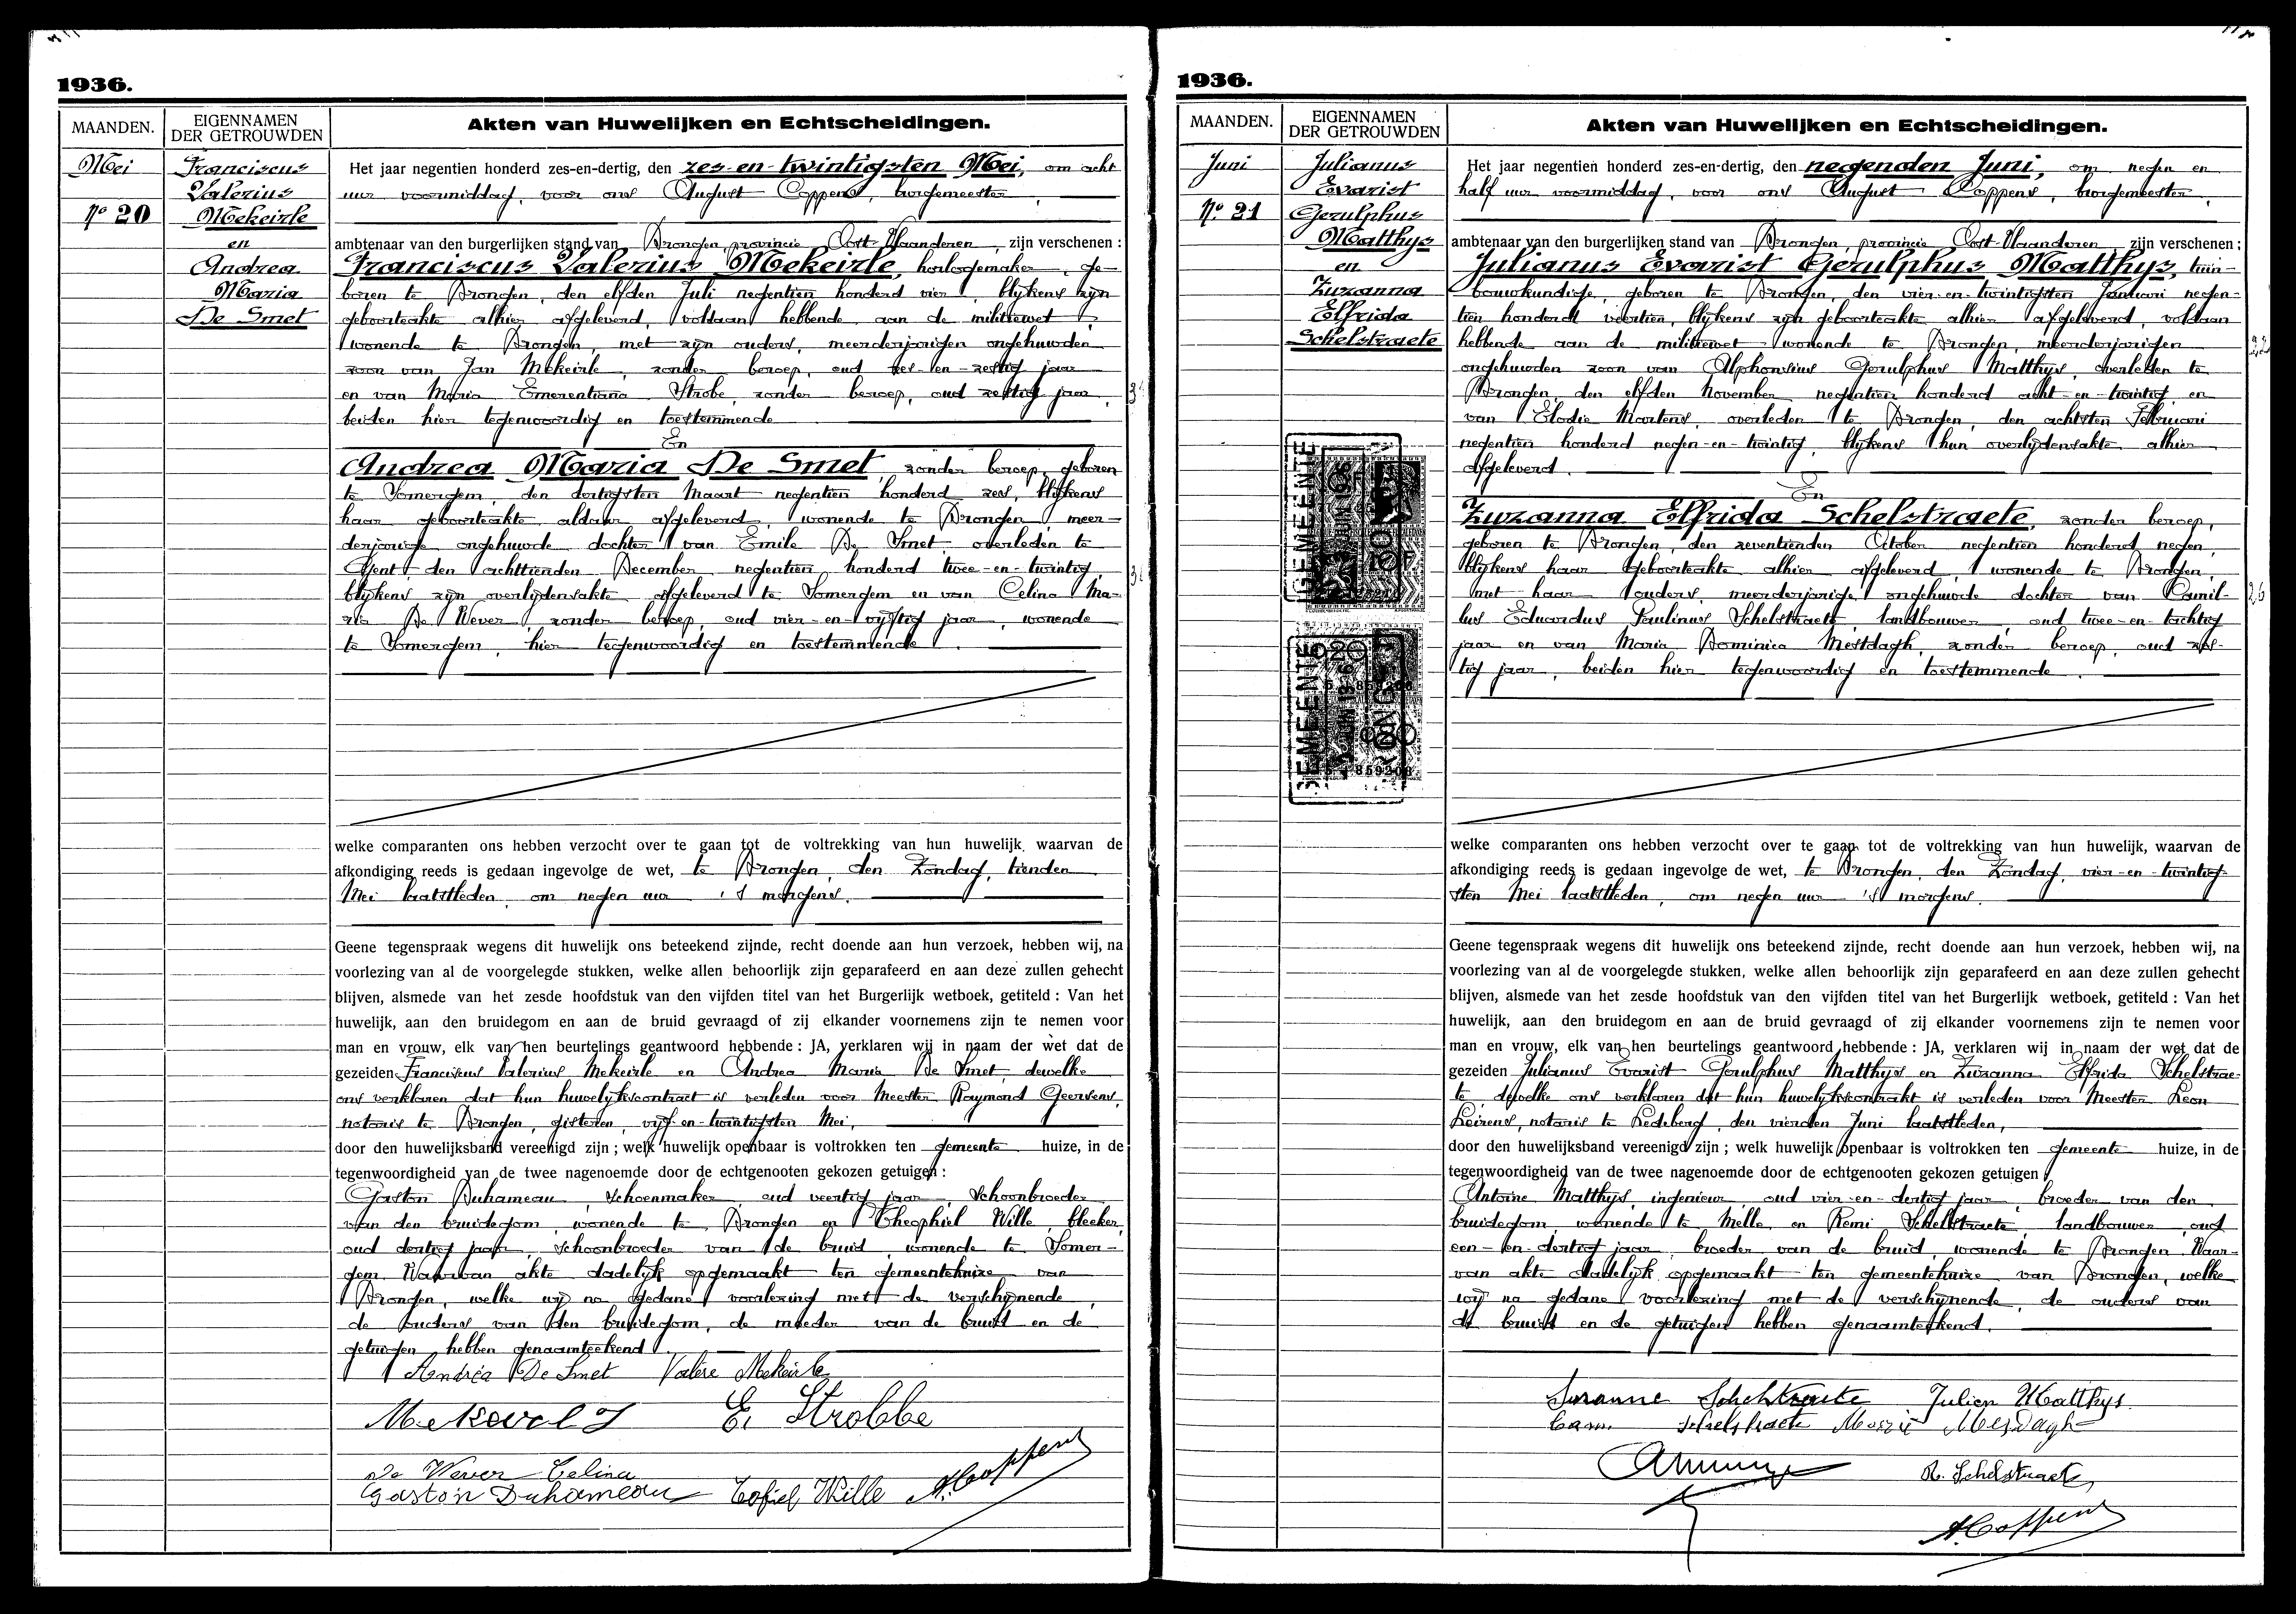 1936.
MAANDEN.
EIGENNAMEN
DER GETROUWDEN
Akten van Huwelijken en Echtscheidingen.
Mei
Nº 20
Franciscus
Valerius
Mekeirle
en
Andrea
Maria
De Smet
Het jaar negentien honderd zes-en-dertig, den zes-en-twintigsten Mei, om acht
uur voormiddag, voor ons August Coppens, burgemeester,
ambtenaar van den burgerlijken stand van Drongen, provincie Oost-Vlaanderen, zijn verschenen :
Franciscus Valerius Mekeirle, horlogemaker, ge-
boren te Drongen, den elfden Juli negentien honderd vier, blijkens zijn
geboorteakte alhier afgeleverd, voldaan hebbende aan de militiewet,
wonende te Drongen, met zijn ouders, meerderjarigen ongehuwden
zoon van Jan Mekeirle, zonder beroep, oud zes-en-zestig jaar
en van Maria Emerentiana Strobe, zonder beroep, oud zestig jaar,
beiden hier tegenwoordig en toestemmende
En
Andrea Maria De Smet, zonder beroep, geboren
te Somergem, den dertigsten Maart negentien honderd zes, blijkens
haar geboorteakte aldaar afgeleverd, wonende te Drongen, meer-
derjarige ongehuwde dochter van Emile De Smet, overleden te
Gent, den achttienden December negentien honderd twee-en-twintig
blijkens zijn overlijdensakte afgeleverd te Somergem en van Celina Ma-
ria De Wever, zonder beroep, oud vier-en-vijftig jaar, wonende
te Somergem, hier tegenwoordig en toestemmende.
welke comparanten ons hebben verzocht over te gaan tot de voltrekking van hun huwelijk, waarvan de
afkondiging reeds is gedaan ingevolge de wet, te Drongen, den Zondag, tienden
Mei laatstleden, om negen uur 's morgens.
Geene tegenspraak wegens dit huwelijk ons beteekend zijnde, recht doende aan hun verzoek, hebben wij, na
voorlezing van al de voorgelegde stukken, welke allen behoorlijk zijn geparafeerd en aan deze zullen gehecht
blijven, alsmede van het zesde hoofdstuk van den vijfden titel van het Burgerlijk wetboek, getiteld : Van het
huwelijk, aan den bruidegom en aan de bruid gevraagd of zij elkander voornemens zijn te nemen voor
man en vrouw, elk van hen beurtelings geantwoord hebbende : JA, verklaren wij in naam der wet dat de
gezeiden Franciscus Valerius Mekeirle en Andrea Maria De Smet, dewelke
ons verklaren dat hun huwelijkscontract is verleden voor Meester Raymond Geersens,
notaris te Drongen, gisteren, vijf-en-twintigsten Mei,
door den huwelijksband vereenigd zijn ; welk huwelijk openbaar is voltrokken ten gemeente huize, in de
tegenwoordigheid van de twee nagenoemde door de echtgenooten gekozen getuigen :
Gaston Duhameau, schoenmaker, oud veertig jaar, schoonbroeder
van den bruidegom, wonende te Drongen en Theophiel Wille, bleeker,
oud dertig jaar, schoonbroeder van de bruid, wonende te Somer-
gem. Waarvan akte dadelijk opgemaakt ten gemeentehuize van
Drongen, welke wij na gedane voorlezing met de verschijnende,
de ouders van den bruidegom, de moeder van de bruid en de
getuigen hebben genaamteekend.
Andréa De Smet Valère Mekeirle
E. Strobbe
De Wever Celina
Gaston Duhameau Tofiel Wille A. Coppens
1936.
MAANDEN.
EIGENNAMEN
DER GETROUWDEN
Akten van Huwelijken en Echtscheidingen.
Juni
Nº 21
Julianus
Evarist
Gerulphus
Matthys
en
Zuzanna
Elfrida
Schelstraete
GEMEENTE
GEMEENTE
Het jaar negentien honderd zes-en-dertig, den negenden Juni, om negen en
half uur voormiddag, voor ons August Coppens, burgemeester,
ambtenaar van den burgerlijken stand van Drongen, provincie Oost-Vlaanderen, zijn verschenen ;
Julianus Evarist Gerulphus Matthys, tuin-
bouwkundige, geboren te Drongen, den vier-en-twintigsten Januari negen-
tien honderd veertien, blijkens zijn geboorteakte alhier afgeleverd, voldaan
hebbende aan de militiewet wonende te Drongen, meerderjarigen
ongehuwden zoon van Alphonsius Gerulphus Matthys, overleden te
Drongen, den elfden November negentien honderd acht-en-twintig, en
van Elodie Martens, overleden te Drongen, den achtsten Februari
negentien honderd negen-en-twintig, blijkens hun overlijdensakte alhier
afgeleverd.
En
Zuzanna Elfrida Schelstraete, zonder beroep,
geboren te Drongen, den zeventienden October negentien honderd negen,
blijkens haar geboorteakte alhier afgeleverd, wonende te Drongen,
met haar ouders, meerderjarige ongehuwde dochter van Camil-
lus Eduardus Paulinus Schelstraete, landbouwer, oud twee-en-tachtig
jaar en van Maria Dominica Mestdagh, zonder beroep, oud zes-
tig jaar, beiden hier tegenwoordig en toestemmende.
welke comparanten ons hebben verzocht over te gaan tot de voltrekking van hun huwelijk, waarvan de
afkondiging reeds is gedaan ingevolge de wet, te Drongen, den Zondag, vier-en-twintig-
sten Mei laatstleden, om negen uur 's morgens.
Geene tegenspraak wegens dit huwelijk ons beteekend zijnde, recht doende aan hun verzoek, hebben wij, na
voorlezing van al de voorgelegde stukken, welke allen behoorlijk zijn geparafeerd en aan deze zullen gehecht
blijven, alsmede van het zesde hoofdstuk van den vijfden titel van het Burgerlijk wetboek, getiteld : Van het
huwelijk, aan den bruidegom en aan de bruid gevraagd of zij elkander voornemens zijn te nemen voor
man en vrouw, elk van hen beurtelings geantwoord hebbende : JA, verklaren wij in naam der wet dat de
gezeiden Julianus Evarist Gerulphus Matthys en Zuzanna Elfrida Schelstrae-
te, dewelke ons verklaren dat hun huwelijkscontrakt is verleden voor Meester Leon
Leirens, notaris te Ledeberg, den vierden Juni laatstleden,
door den huwelijksband vereenigd zijn ; welk huwelijk openbaar is voltrokken ten gemeente huize, in de
tegenwoordigheid van de twee nagenoemde door de echtgenooten gekozen getuigen :
Antoine Matthys, ingenieur, oud vier-en-dertig jaar, broeder van den
bruidegom, wonende te Melle en Remi Schelstraete, landbouwer, oud
een-en-dertig jaar, broeder van de bruid, wonende te Drongen. Waar-
van akte dadelijk opgemaakt ten gemeentehuize van Drongen, welke
wij na gedane voorlezing met de verschijnende, de ouders van
de bruid en de getuigen hebben genaamteekend.
Suzanne Schelstraete Julien Matthys
Cam. Schelstraete Marie Mesdagh
R. Schelstraete
A. Coppens